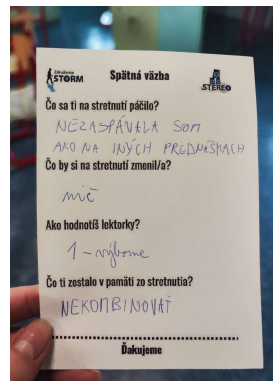 Združenie
STORM
Spätná väzba
STEREO
Čo sa ti na stretnutí páčilo?
NEZASPÁVALA SOM
AKO NA INÝCH PREDNÁŠKACH
Čo by si na stretnutí zmenil/a?
nič
Ako hodnotíš lektorky?
1 - výborne
Čo ti zostalo v pamäti zo stretnutia?
NEKOMBINOVAŤ
Ďakujeme